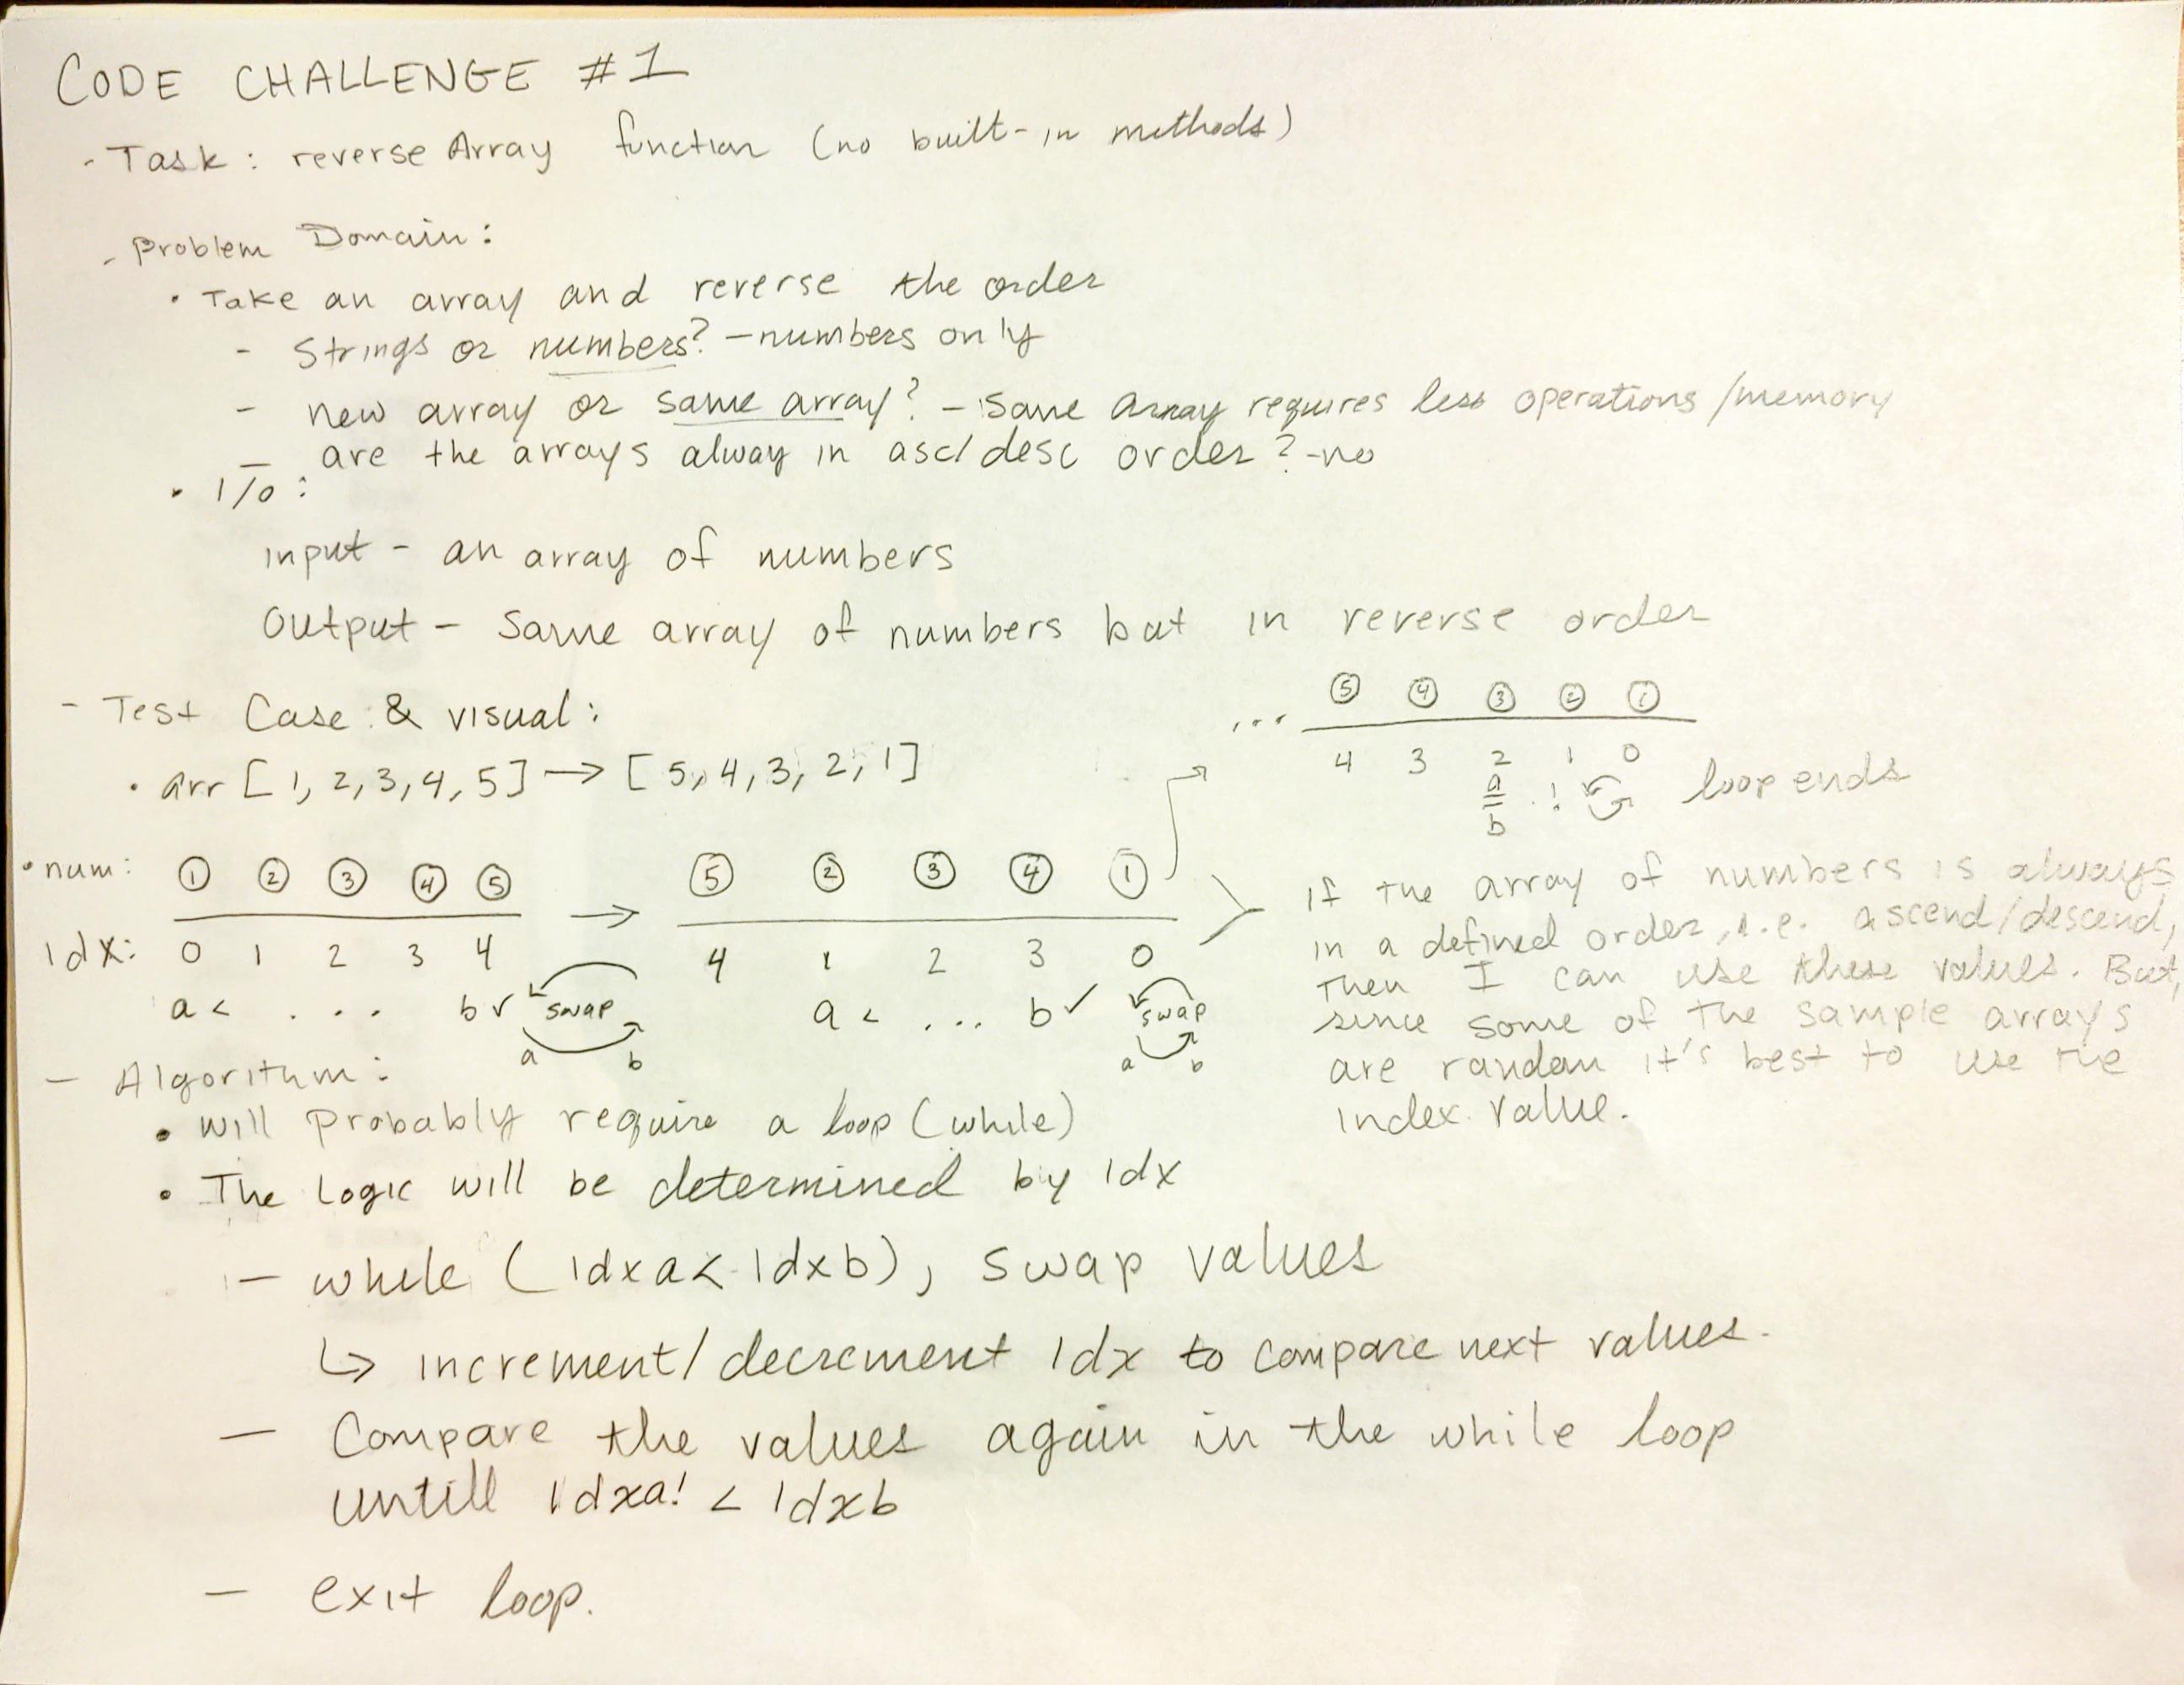 CODE CHALLENGE #1
- Task: reverse Array function (no built-in methods)
- Problem Domain:
• Take an array and reverse the order
- Strings or numbers? - numbers only
- new array or same array? - same array requires less operations/memory
- are the arrays alway in asc/desc order? - no
• I/O:
input - an array of numbers
Output - Same array of numbers but in reverse order
- Test Case & visual:
• arr [1, 2, 3, 4, 5] → [5, 4, 3, 2, 1]
• num: 1 2 3 4 5 → 5 2 3 4 1
idx: 0 1 2 3 4 4 1 2 3 0
a < ... b ✓ swap a < ... b ✓ swap
a b a b
... 5 4 3 2 1
4 3 2 1 0
a = b ! loop ends
If the array of numbers is always
in a defined order, i.e. ascend/descend,
then I can use these values. But,
since some of the sample arrays
are random it's best to use the
index value.
- Algorithm:
• will probably require a loop (while)
• The logic will be determined by idx
- while (idxa < idxb), swap values
↳ increment/decrement idx to compare next values.
- Compare the values again in the while loop
untill idxa! < idxb
- exit loop.